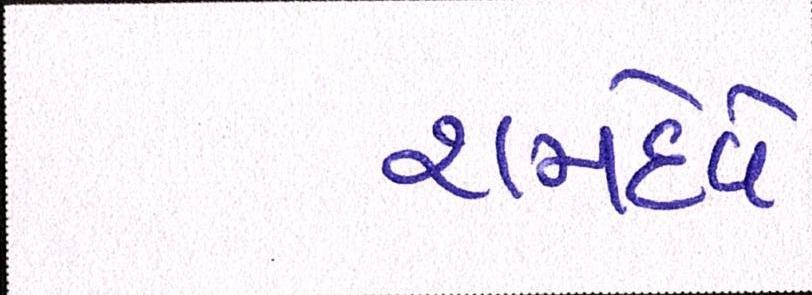 રામદેવે